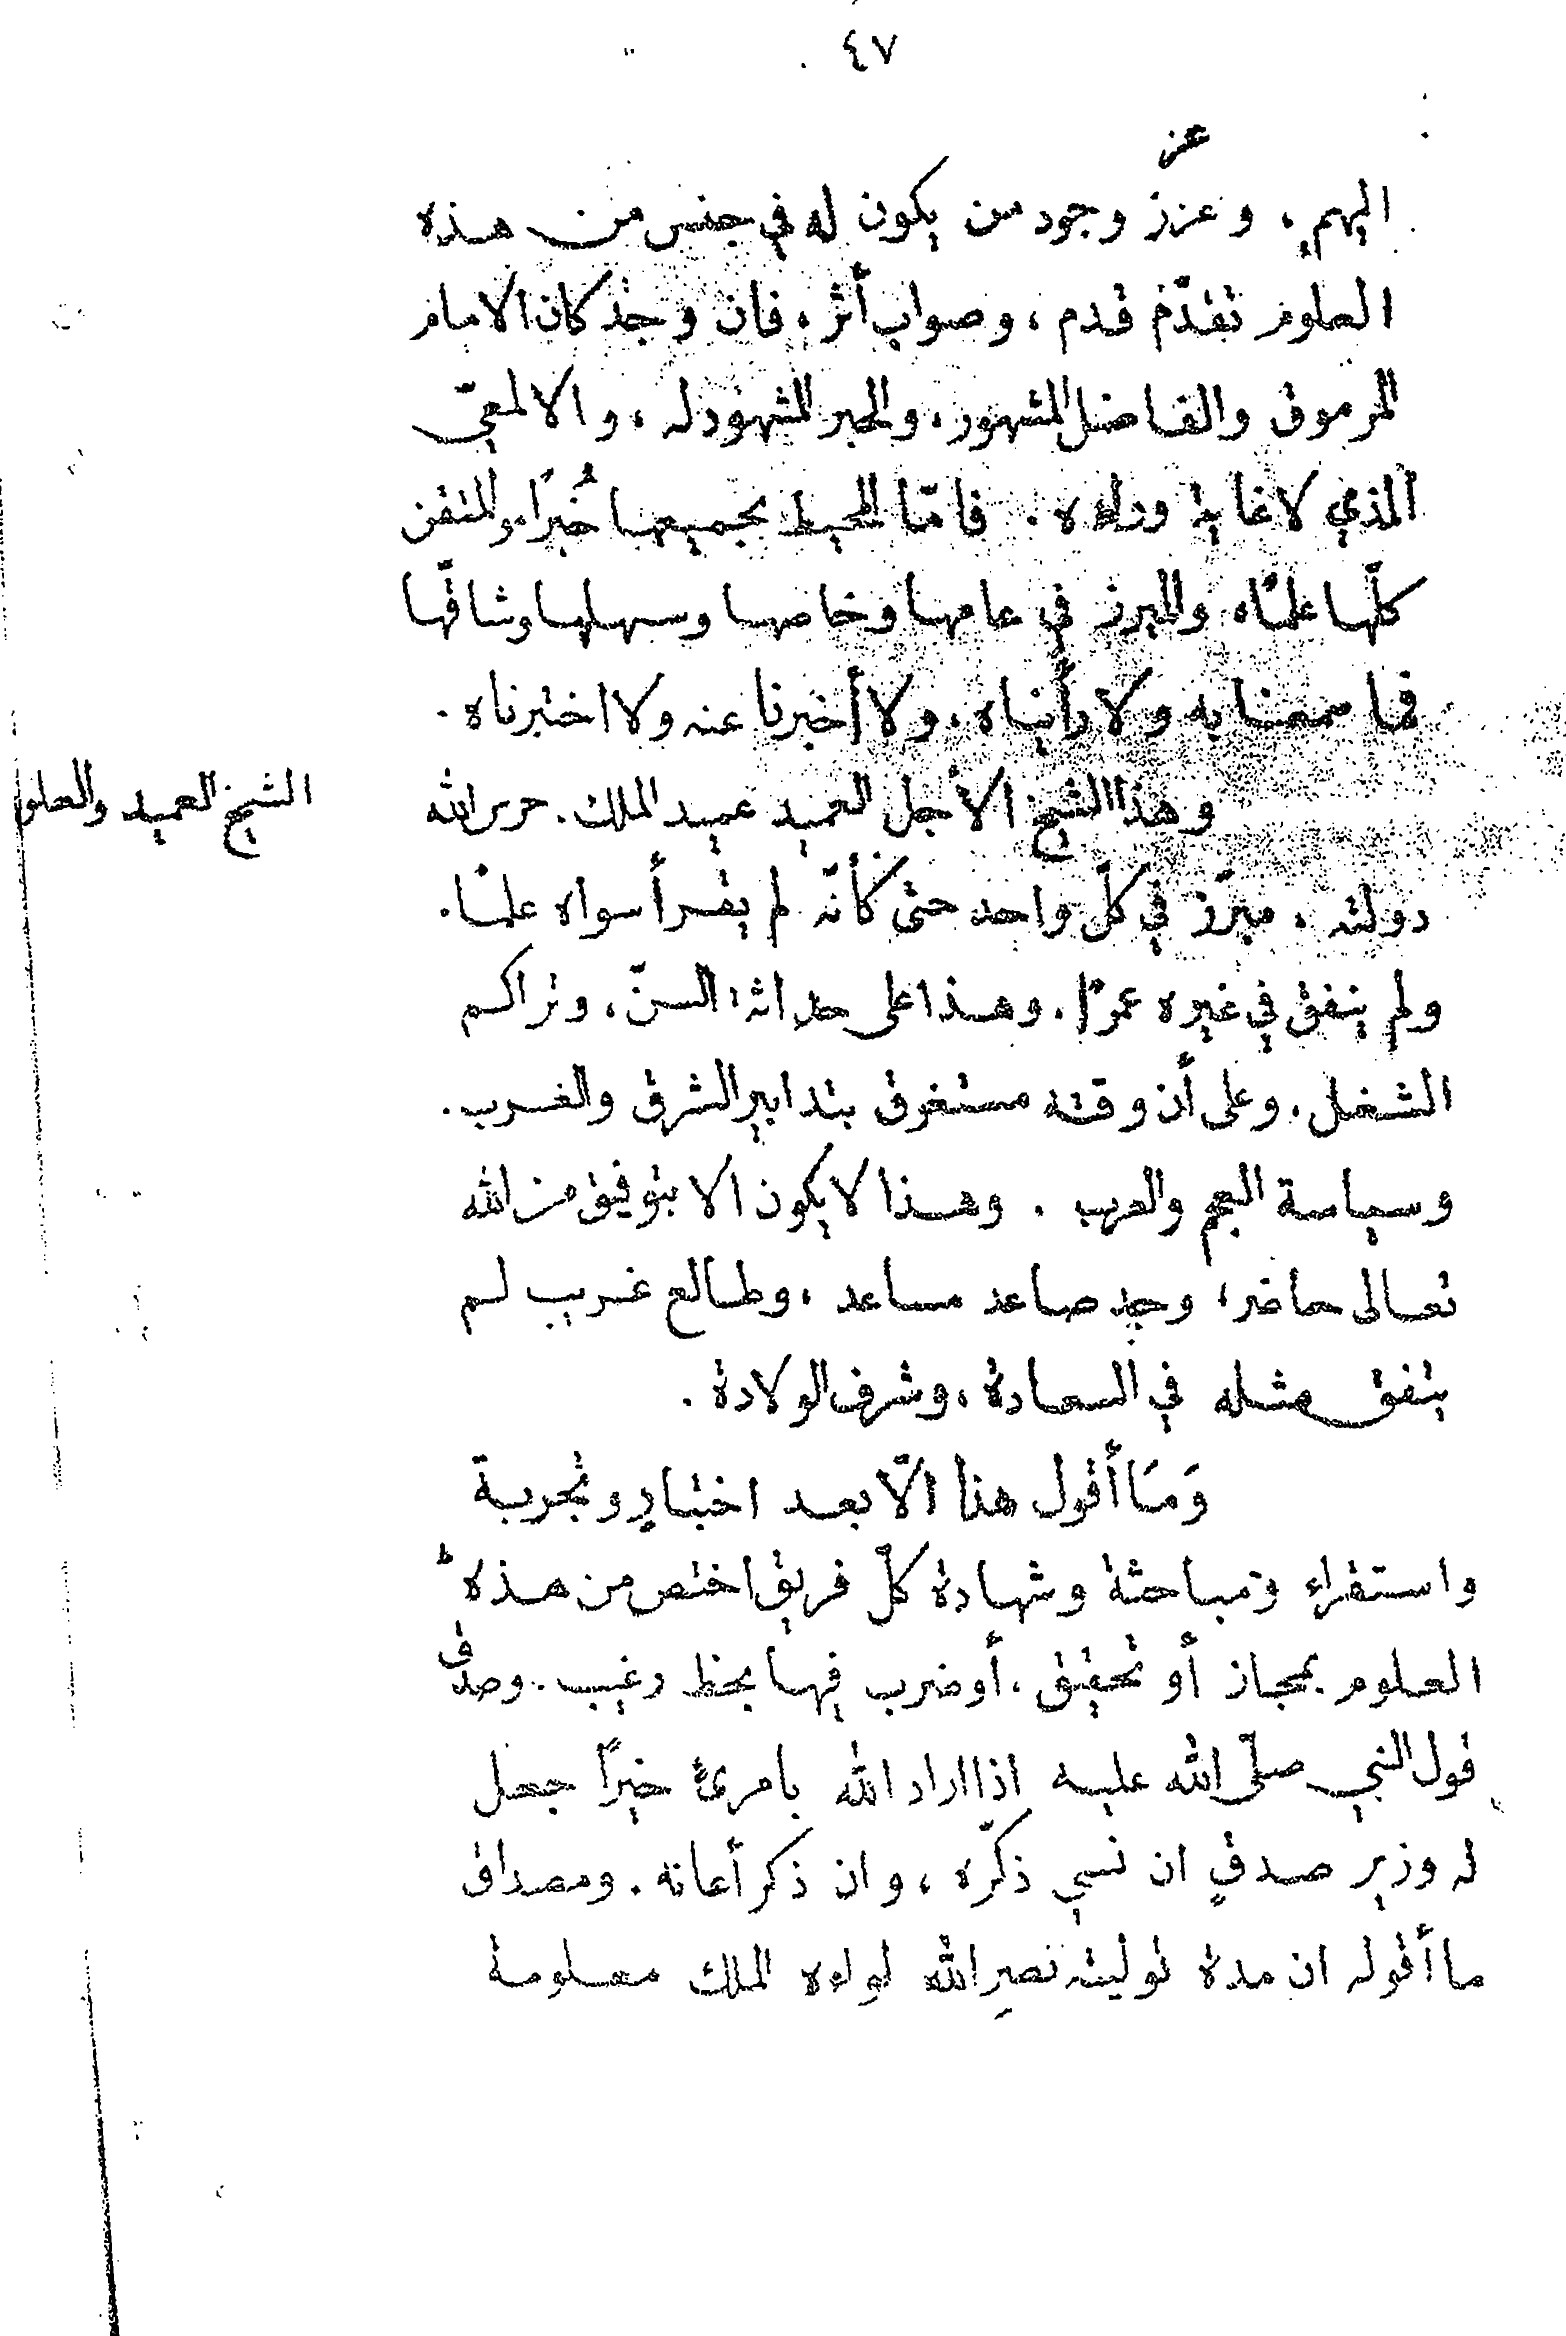 ٤٧
عز
اليهم، وعزز وجود من يكون له في جنس من هذه
العلوم تقدّم قدم، وصواب أثر، فان وجد كان الامام
المرموق والفاضل المشهور، والحبر المشهود له، والالمعيّ
الذي لا غاية وراءه. فامّا المحيط بجميعها خُبرًا، والمتقن
كلّها علمًا، والمبرز في عامها وخاصها وسهلها وشاقّها
فما سمعنا به ولا رأيناه، ولا أخبرنا عنه ولا اختبرناه.
وهذا الشيخ الأجل العميد عميد الملك. حرس الله
الشيخ العميد والعلو
دولته، مبرّز في كلّ واحد حتى كأنّه لم يقرأ سواه علمًا.
ولم ينفق في غيره عمرًا. وهذا على حداثة السنّ، وتراكم
الشغل، وعلى أن وقته مستغرق بتدابير الشرق والغرب.
وسياسة العجم والعرب. وهذا لا يكون الا بتوفيق من الله
تعالى حاضر، وجد صاعد مساعد، وطالع غريب لم
يتفق مثله في السعادة، وشرف الولادة.
وَمَا أقول هذا الّا بعد اختبارٍ وتجربة
واستقراء ومباحثة وشهادة كلّ فريق اختص من هذه
العلوم بمجاز أو تحقيق، أو ضرب فيها بحظ رغيب. وصدق
قول النبي صلّى الله عليه اذا اراد الله بامرئ خيرًا جعل
له وزير صدقٍ ان نسي ذكّره، وان ذكر أعانه. ومصداق
ما أقوله ان مدة توليته نصر الله لواءه الملك معلومة